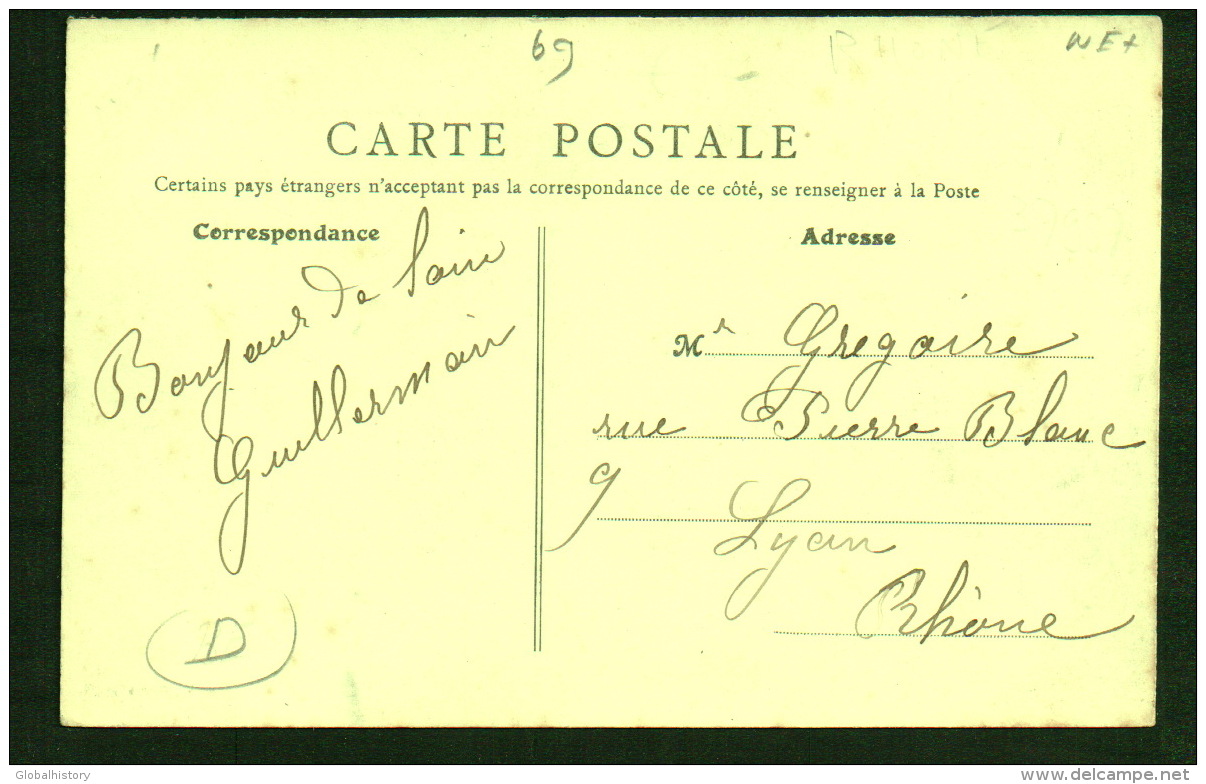 69
WE+
CARTE POSTALE
Certains pays étrangers n'acceptant pas la correspondance de ce côté, se renseigner à la Poste
Correspondance
Bonjour de Sain
Guillermain
D
Adresse
Mr Gregoire
rue Pierre Blanc
9
Lyon
Rhône
Globalhistory
www.delcampe.net